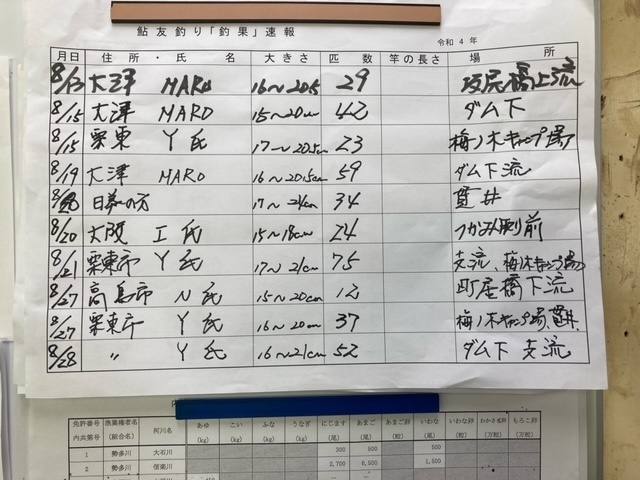 鮎友釣り「釣果」速報
令和4年
月日 住所・氏名 大きさ 匹数 竿の長さ 場所
8/13 大津 MARO 16～20.5 29 坂尻橋上流
8/15 大津 MARO 15～20cm 42 ダム下
8/15 栗東 Y氏 17～20.5cm 23 梅ノ木キャンプ場
8/19 大津 MARO 16～20.5cm 59 ダム下流
の方 17～21cm 34 貫井
8/20 大阪 I氏 15～18cm 24 つかみ取り前
8/21 栗東市 Y氏 17～21cm 75 支流、梅ノ木キャンプ場
8/27 高島市 N氏 15～20cm 12 町居橋下流
8/27 栗東市 Y氏 16～20cm 37 梅ノ木キャンプ場、貫井
8/28 〃 Y氏 16～21cm 52 ダム下 支流
免許番号 漁業権者名 河川名 あゆ こい ふな うなぎ にじます あまご あまご卵 いわな いわな卵 わかさぎ卵 もろこ卵
内共第号 (組合名) (kg) (kg) (kg) (kg) (尾) (尾) (粒) (尾) (粒) (万粒) (万粒)
1 勢多川 大石川 300 500 500
2 勢多川 信楽川 2,700 6,500 1,500